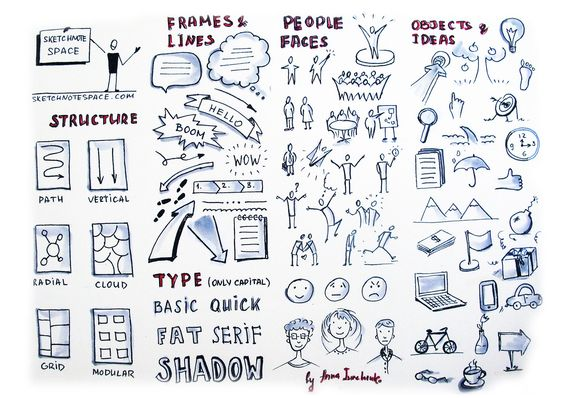 SKETCHNOTE
SPACE
SKETCHNOTESPACE.COM
STRUCTURE
PATH
VERTICAL
RADIAL
CLOUD
GRID
MODULAR
FRAMES &
LINES
HELLO
BOOM
WOW
1. 2. 3.
TYPE (ONLY CAPITAL)
BASIC QUICK
FAT SERIF
SHADOW
PEOPLE
FACES
?
by Anna
OBJECTS &
IDEAS
12
3
6
9